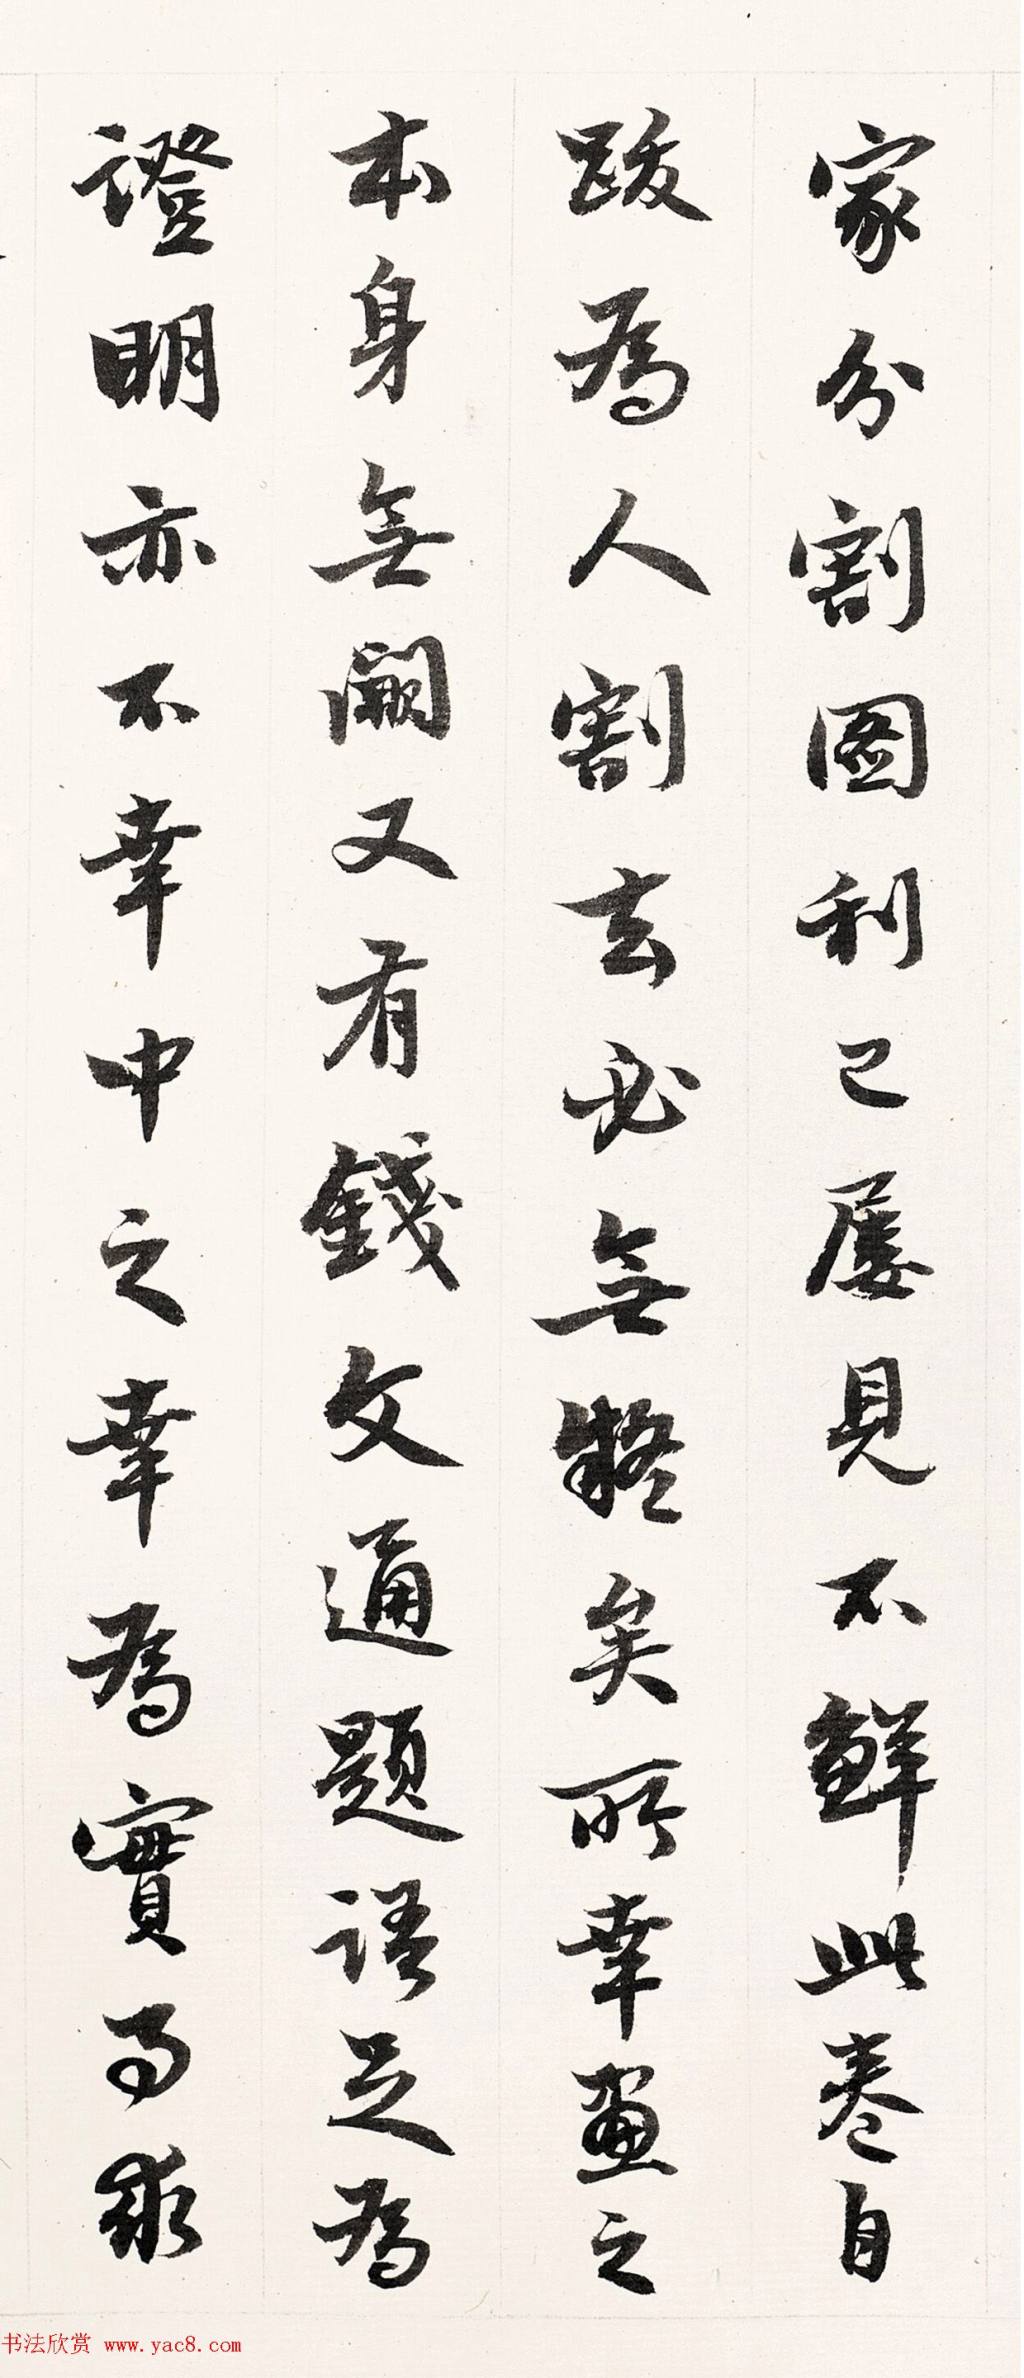 家分割圖利已屢見不鮮此卷自
跋為人割去必無疑矣所幸畫之
本身無闕又有錢文通題語足為
證明亦不幸中之幸為實可
书法欣赏 www.yac8.com